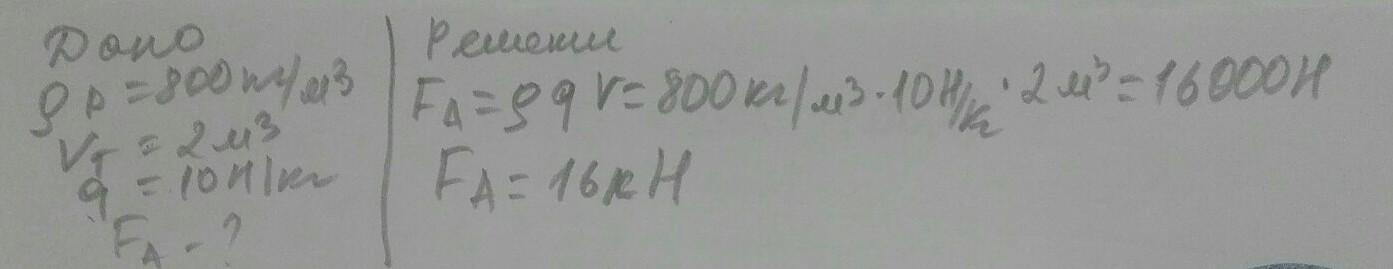 Дано
ρр = 800 кг/м³
Vт = 2 м³
g = 10 Н/кг
FА - ?
Решении
FА = ρ g V = 800 кг/м³ · 10 Н/кг · 2 м³ = 16000 Н
FА = 16 кН